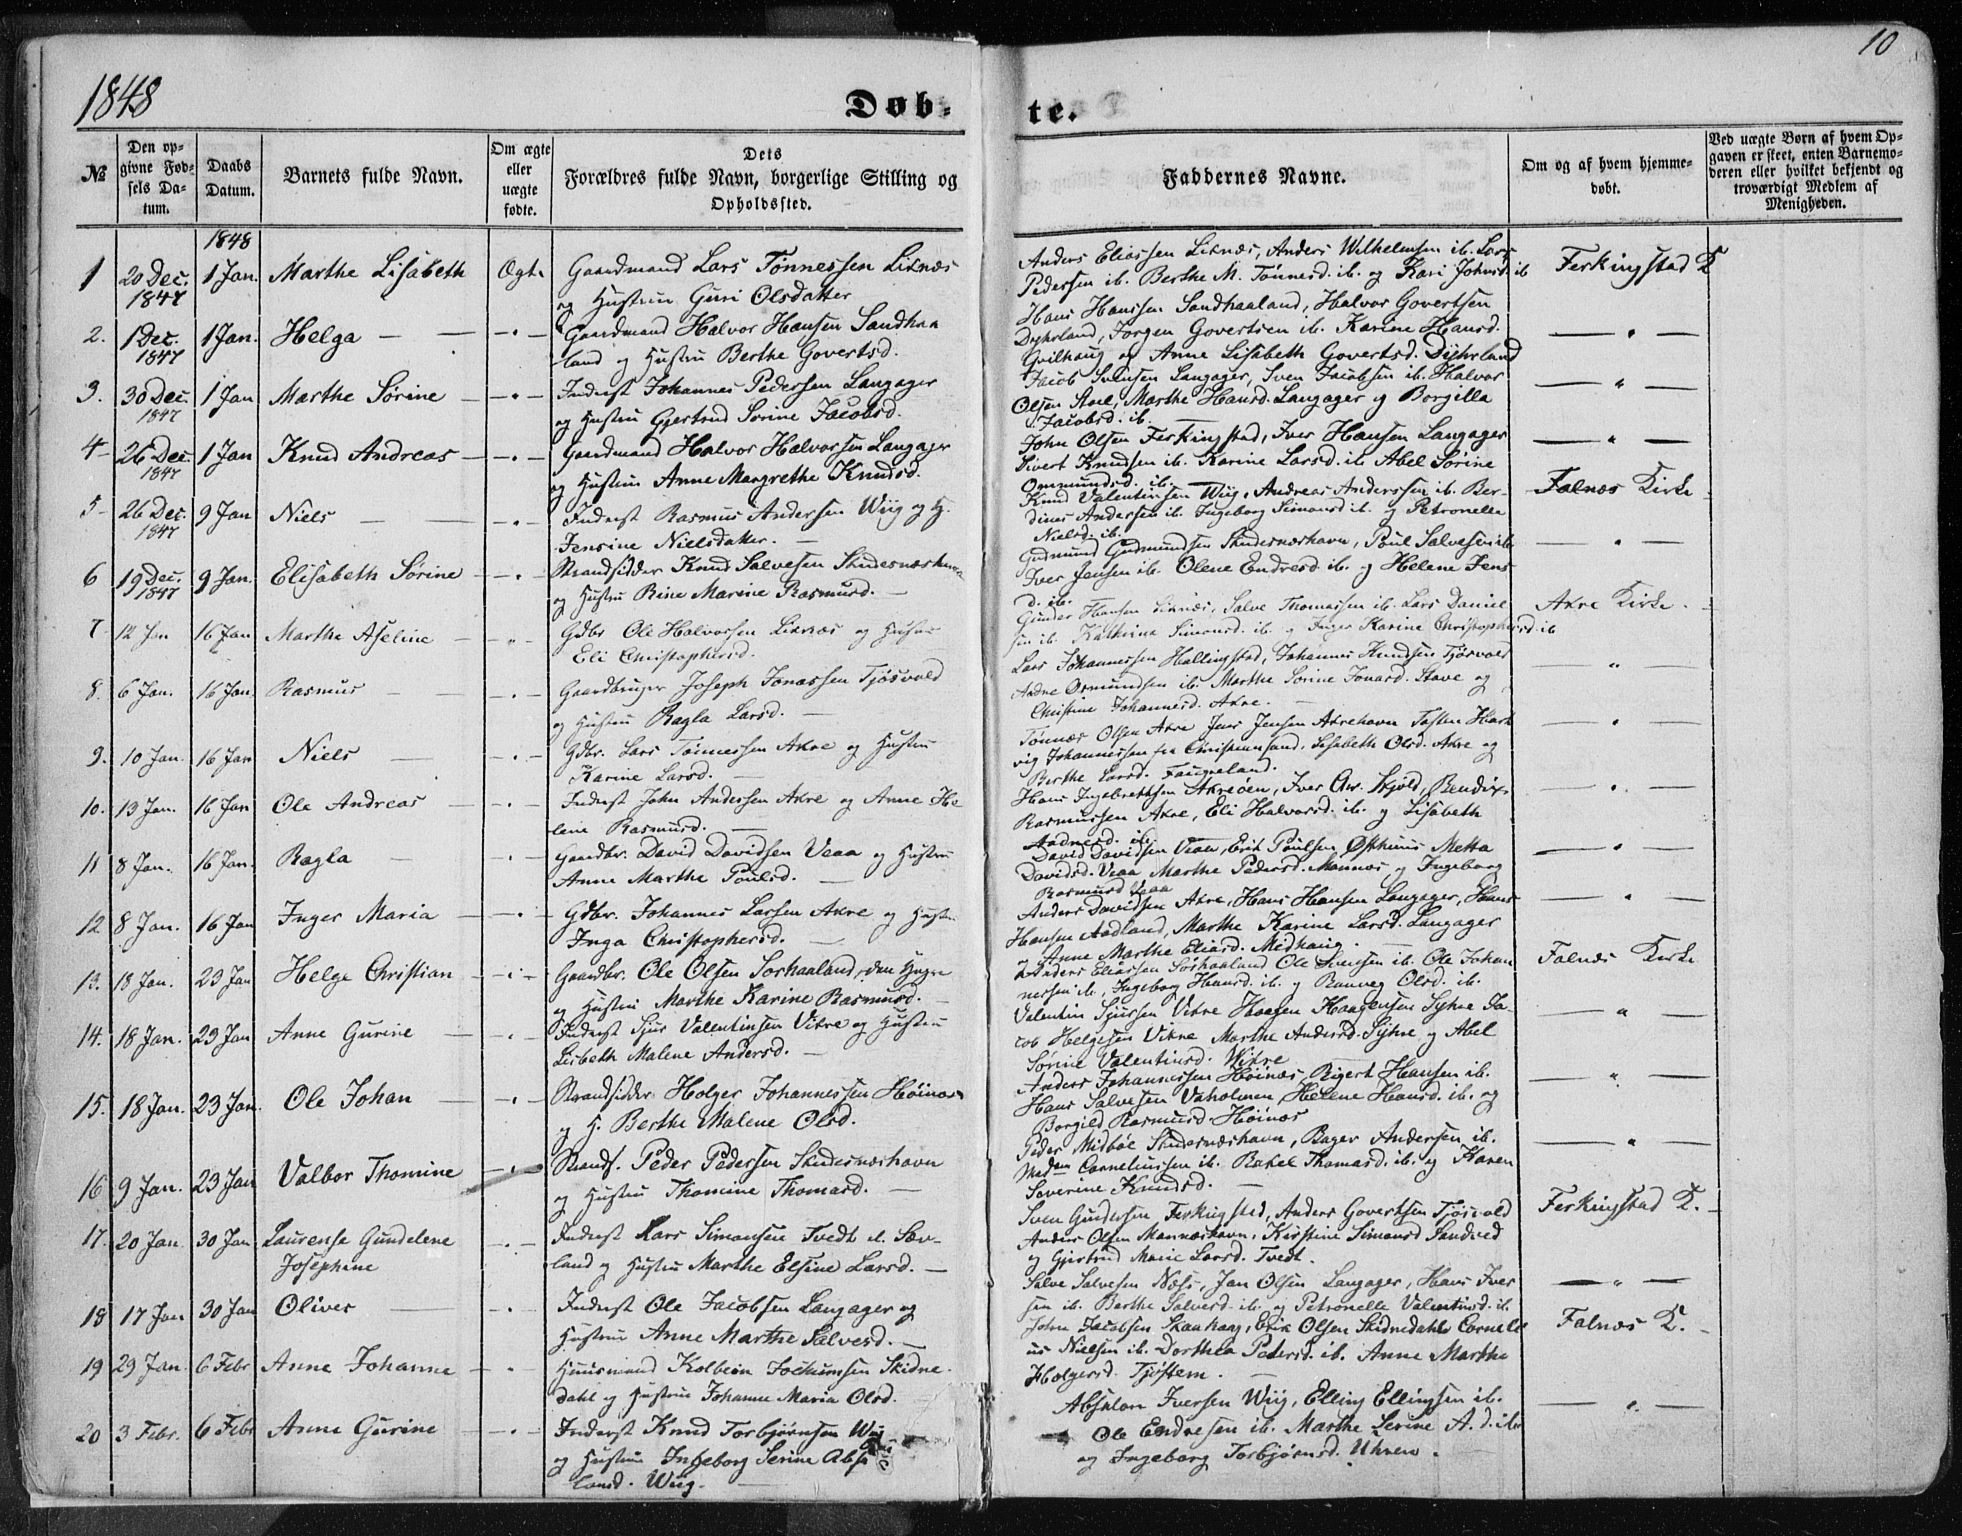 1848
Døb-
te.
10
№
Den op-
givne Fød-
sels Da-
tum.
Daabs
Datum.
Barnets fulde Navn.
Om ægte
eller
uægte
fødte.
Dets
Forældres fulde Navn, borgerlige Stilling og
Opholdssted.
Faddernes Navne.
Om og af hvem hjemme-
døbt.
Ved uægte Børn af hvem Op-
gaven er skeet, enten Barnemo-
deren eller hvilket bekjendt og
troværdigt Medlem af
Menigheden.
1848
1 20 Dec. 1847 1 Jan. Marthe Lisabeth Ægte Gaardmand Lars Tønnessen Liknæs
og Hustru Guri Olsdatter
Anders Eliassen Liknæs, Anders Wilhelmsen ib. Lars
Pedersen ib. Berthe M. Tønnesd. ib. og Kari Johnsd. ib
Ferkingstad K
2. 1 Dec. 1847 1 Jan. Helga — " — Gaardmand Halvor Hansen Sandhaa
land og Hustru Berthe Govertsd.
Hans Hanssen Sandhaaland, Halvor Govertsen
Dyhrland, Jørgen Govertsen ib. Karine Hansd.
Qvilhaug og Anne Lisabeth Govertsd. Dyhrland
— " —
3. 30 Dec. 1847 1 Jan Marthe Sørine — " — Inderst Johannes Pedersen Langager
og Hustru Gjertrud Sørine Jacobsd.
Jacob Svensen Langager, Sven Jacobsen ib. Halvor
Olsen Marthe Hansd. Langager og Borgilla
Jacobsd. ib.
— " —
4 26 Dec. 1847 1 Jan Knud Andreas — " — Gaardmand Halvor Halvorsen Langager
og Hustru Anne Margrethe Knudsd.
John Olsen Ferkingstad, Iver Hansen Langager
Sivert Knudsen ib. Karine Larsd. ib. Abel Sørine
Ommundsd. ib.
— " —
5 26 Dec. 1847 9 Jan Niels — " — Inderst Rasmus Andersen Wiig og H.
Jensine Nielsdatter.
Knud Valentinsen Wiig, Andreas Anderssen ib. Ber-
dines Andersen ib. Ingeborg Simonsd. ib. og Petronelle
Nielsd. ib.
Falnæs Kirke
6 19 Dec. 1847 9 Jan. Elisabeth Sørine — " — Strandsidder Knud Salvesen Skudesnæshavn
og Hustru Rine Marine Rasmusd.
Gudmund Gudmundsen Skudesnæshavn, Poul Salvesen ib
Iver Jensen ib. Olene Endresd. ib. og Helene Jens
d. ib.
— " —
7 12 Jan 16 Jan Marthe Aseline — " — Gdbr Ole Halvorsen Liknæs og Hustru
Eli Christophersd.
Gunder Hansen Liknæs, Salve Thomassen ib. Lars Daniel
sen ib. Kathrina Simonsd. ib. og Inger Karine Christophersd. ib
Akre Kirke.
8. 6 Jan. 16 Jan. Rasmus — " — Gaardbruger Joseph Jonassen Tjøsvold
og Hustru Ragla Larsd.
Lars Johannessen Hallingstad, Johannes Knudsen Tjøsvold
Aadne Osmundsen ib. Marthe Sørine Jonasd. Stave og
Christine Johannesd. Akre.
— " —
9. 10 Jan. 16 Jan Niels — " — Gdbr. Lars Tønnessen Akre og Hustru
Karine Larsd.
Tønnæs Olsen Akre Jens Jensen Akrehavn Tosten Hart
vig Johannessen fra Christiansand, Lisabeth Olsd. Akre og
Berthe Larsd.
— " —
10. 13 Jan. 16 Jan Ole Andreas — " — Inderst John Andersen Akre og Anne He
lene Rasmusd.
Hans Ingebretsen Akreøen, Iver Chr. Skjold, Bendix
Rasmussen Akre, Eli Halvorsd. ib. og Lisabeth
Aadnesd. ib.
— " —
11 8 Jan. 16 Jan. Ragla — " — Gaardbr. David Davidsen Veaa og Hustru
Anne Marthe Poulsd.
David Davidsen Veaa, Erik Poulsen Østhuus Metta
Davidsd. Veaa Marthe Pedersd. Mannæs og Ingeborg
Rasmusd Veaa
— " —
12 8 Jan. 16 Jan Inger Maria — " — Gdbr. Johannes Larsen Akre og Hustru
Inga Christophersd.
Anders Davidsen Akre, Hans Hansen Langager, Hans
Hansen Aadland, Marthe Karine Larsd. Langager
og Anne Marthe Eliasd. Medhaug.
— " —
13. 18 Jan. 23 Jan Helge Christian — " — Gaardbr. Ole Olsen Sørhaaland, den Yngre
og Hustru Marthe Karine Rasmusd.
Anders Eliassen Sørhaaland Ole Svensen ib. Ole Johan
nessen ib, Ingeborg Hansd. ib. og Ranveg Olsd. ib.
Falnæs Kirke
14. 18 Jan. 23 Jan Anne Gurine — " — Inderst Sjur Valentinsen Vikre og Hustru
Lisbeth Malene Andersd.
Valentin Sjursen Vikre Haagen Haagensen Syhre Ja-
cob Helgesen Vikre Marthe Andersd. Syhre og Abel
Sørine Valentinsd. Wikre
— " —
15. 18 Jan. 23 Jan. Ole Johan — " — Strandsidder Holger Johannessen Høinæs
og H. Berthe Malene Olsd.
Anders Johannessen Høinæs, Sigert Hansen ib.
Hans Salvesen Vaholmen, Helene Hansd. ib. og
Borgild Rasmusd Høinæs
— " —
16 9 Jan. 23 Jan Valbor Thomine — " — Strands. Peder Pedersen Skudesnæshavn
og Hustru Thomine Thomasd.
Peder Midbøe Skudesnæshavn, Bager Andersen ib.
Madm Corneliussen ib. Rakel Thomasd. ib. og Karen
Severine Knudsd.
— " —
17. 20 Jan. 30 Jan Laurense Gundelene
Josephine — " — Inderst Lars Simonsen Tvedt
land og Hustru Marthe Elsine Larsd.
Sven Gundersen Ferkingsted, Anders Govertsen Tjøsvold
Anders Olsen Mannæshavn, Kirstine Simonsd Sandved
og Gjertrud Marie Larsd. Tvedt.
Ferkingstad K.
18 17 Jan 30 Jan Oliver — " — Inderst Ole Jacobsen Langager og
Hustru Anne Marthe Salvesd.
Salve Salvesen Næss, Jan Olsen Langager, Hans Iver
sen ib. Berthe Salvesd. ib. og Petronelle Valentinsd. ib.
— " —
19 29 Jan. 6 Febr Anne Johanna — " — Huusmand Kolbein Jochumsen Skidne-
dahl og Hustru Johanne Maria Olsd.
John Jacobsen Erik Olsen Skidnedahl Corneli
us Nielsen ib. Dorthea Pedersd. ib. Anne Marthe
Holgersd. Tjøstem.
Falnæs K.
20 3 Febr. 6 Febr Anne Gurine — " — Inderst Knud Torbjørnsen Wiig
og Hustru Ingeborg Serine Absa
lonsd. Wiig.
Absalon Iversen Wiig, Elling Ellingsen ib.
Ole Endresen ib. Marthe Serine A. d. ib
og Ingeborg Torbjørnsd. Uhren.
— " —